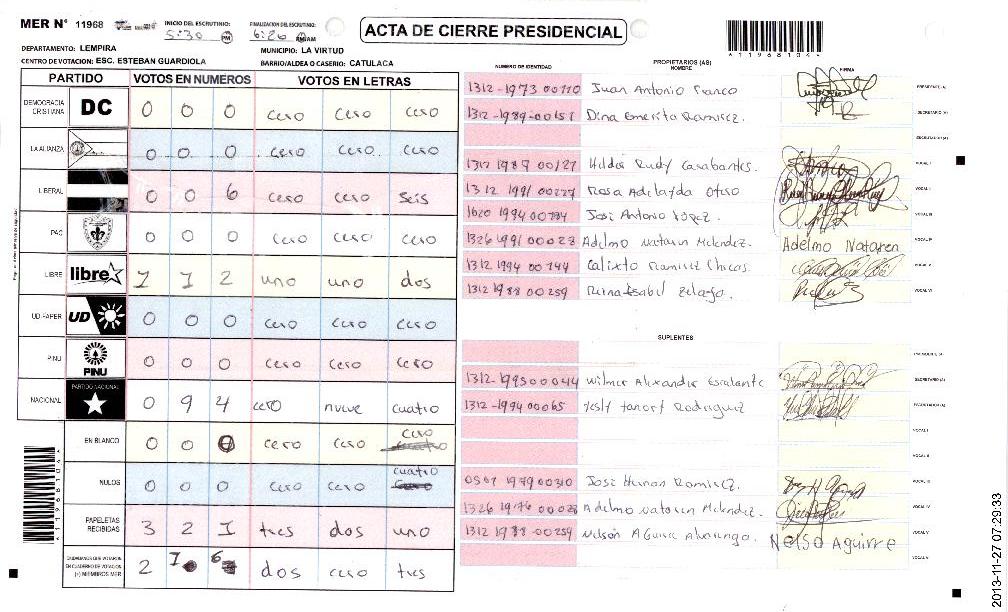 MER N° 11968
INICIO DEL ESCRUTINIO: 5:30 PM
FINALIZACION DEL ESCRUTINIO: 6:26 AM
ACTA DE CIERRE PRESIDENCIAL
DEPARTAMENTO: LEMPIRA
MUNICIPIO: LA VIRTUD
CENTRO DE VOTACION: ESC. ESTEBAN GUARDIOLA
BARRIO/ALDEA O CASERIO: CATULACA
PARTIDO VOTOS EN NUMEROS VOTOS EN LETRAS
DEMOCRACIA CRISTIANA DC 0 0 0 cero cero cero
LA ALIANZA 0 0 0 cero cero cero
LIBERAL 0 0 6 cero cero seis
PAC 0 0 0 cero cero cero
LIBRE libre 1 1 2 uno uno dos
UD-FAPER UD 0 0 0 cero cero cero
PINU PINU 0 0 0 cero cero cero
NACIONAL PARTIDO NACIONAL 0 9 4 cero nueve cuatro
EN BLANCO 0 0 0 cero cero cero
NULOS 0 0 0 cero cero cuatro
PAPELETAS RECIBIDAS 3 2 1 tres dos uno
CIUDADANOS QUE VOTARON EN CUADERNO DE VOTACION (+) MIEMBROS MER 2 1 6 dos cero tres
NUMERO DE IDENTIDAD
PROPIETARIOS (AS)
NOMBRE
FIRMA
1312-1973 00110 Juan Antonio Franco PRESIDENTE (A)
1312-1989-00151 Dina Emerita Ramirez. SECRETARIO (A)
SECRETARIO (A)
1312 1987 00127 Hilder Rudy Casabantes. VOCAL I
1312 1991 00227 Rosa Adelayda VOCAL II
1620 1994 00784 José Antonio López. VOCAL III
1326 1991 00023 Adelmo Nataren Melendez. Adelmo Nataren VOCAL IV
1312 1994 00144 Calixto Ramirez Chicas VOCAL V
1312 1988 00259 Reina Isabel VOCAL VI
SUPLENTES
PRESIDENTE (A)
1312-1995 00044 Wilmer Alexander Escalante SECRETARIO (A)
1312-1994 00065 Rodriguez SECRETARIO (A)
VOCAL I
VOCAL II
0501 1979 00310 José Hernan Ramirez. VOCAL III
1326 1976 00028 Adelmo Nataren Melendez. VOCAL IV
1312 1988-00259 Nelson Aguirre Nelso Aguirre VOCAL V
VOCAL VI
A119681044
A119681044
2013-11-27 07:29:33